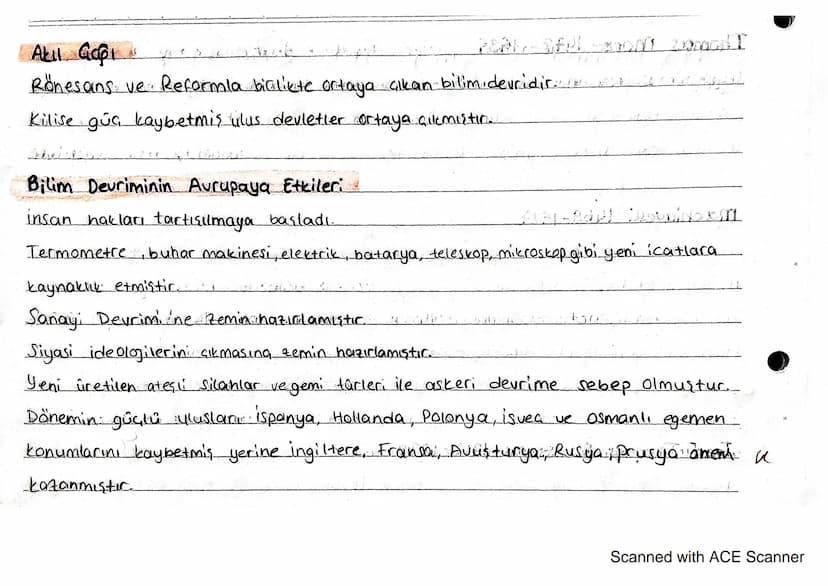 Akıl Çağı
Rönesans ve Reformla birlikte ortaya çıkan bilim devridir.
Kilise güç kaybetmiş ulus devletler ortaya çıkmıştır.
Bilim Devriminin Avrupaya Etkileri
insan hakları tartışılmaya başladı.
Termometre, buhar makinesi, elektrik, batarya, teleskop, mikroskop gibi yeni icatlara
kaynaklık etmiştir.
Sanayi Devrimi'ne zemin hazırlamıştır.
Siyasi ideolojilerin çıkmasına zemin hazırlamıştır.
Yeni üretilen ateşli silahlar ve gemi türleri ile askeri devrime sebep olmuştur.
Dönemin güçlü ulusları İspanya, Hollanda, Polonya, isveç ve osmanlı egemen
konumlarını kaybetmiş yerine ingiltere, Fransa, Avusturya, Rusya, prusya önem
kazanmıştır.
Scanned with ACE Scanner